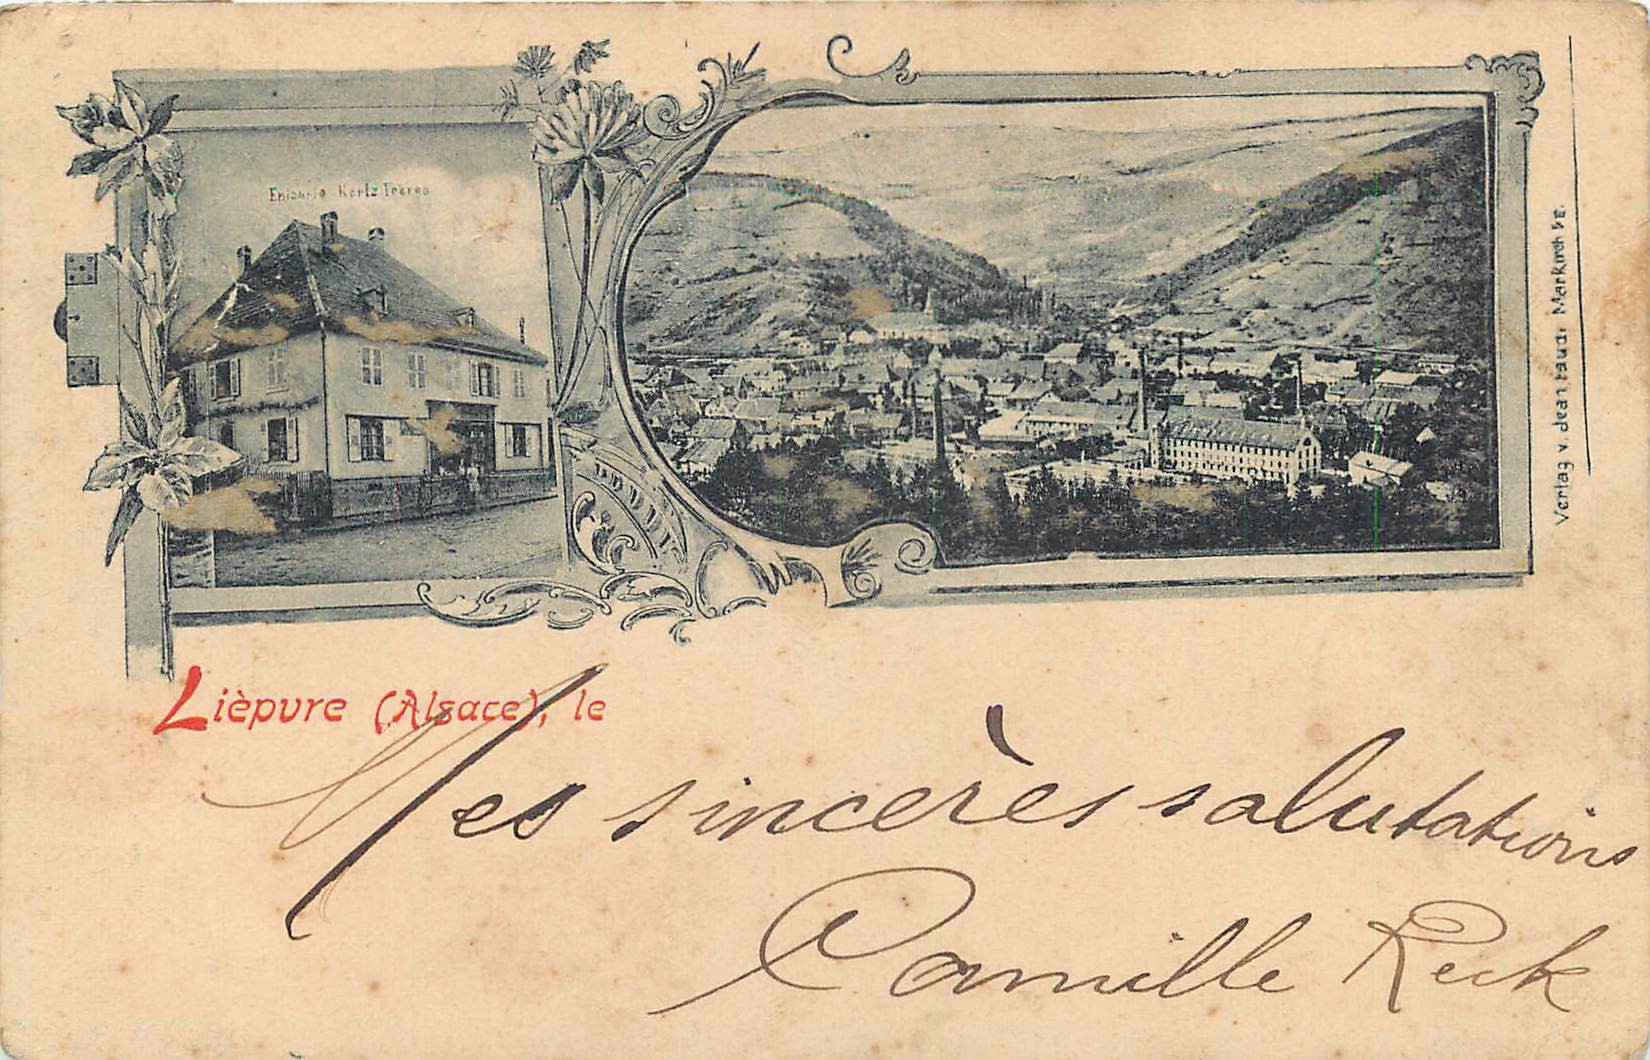 Epicerie Kertz Frères
Verlag v. Jean Markirch i/E.
Lièpvre (Alsace), le
Mes sincères salutations
Camille